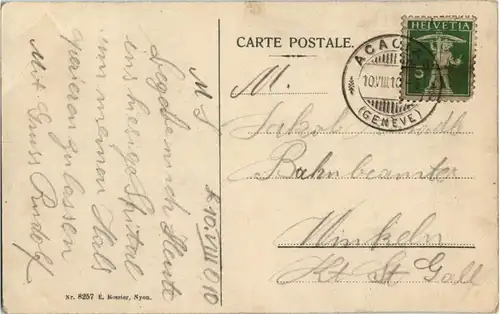 CARTE POSTALE.
HELVETIA
5
ACAC
10.VIII.10
(GENÈVE)
M.
Jakob
Bahnbeamter
Winkeln
Kt St Gall
10.VIII 010
M L
Begebe mich Heute
ins hiesige Spital
um meinen Hals
operieren zu lassen
Mit Gruss Rudolf
Nr. 8257 E. Rossier, Nyon.